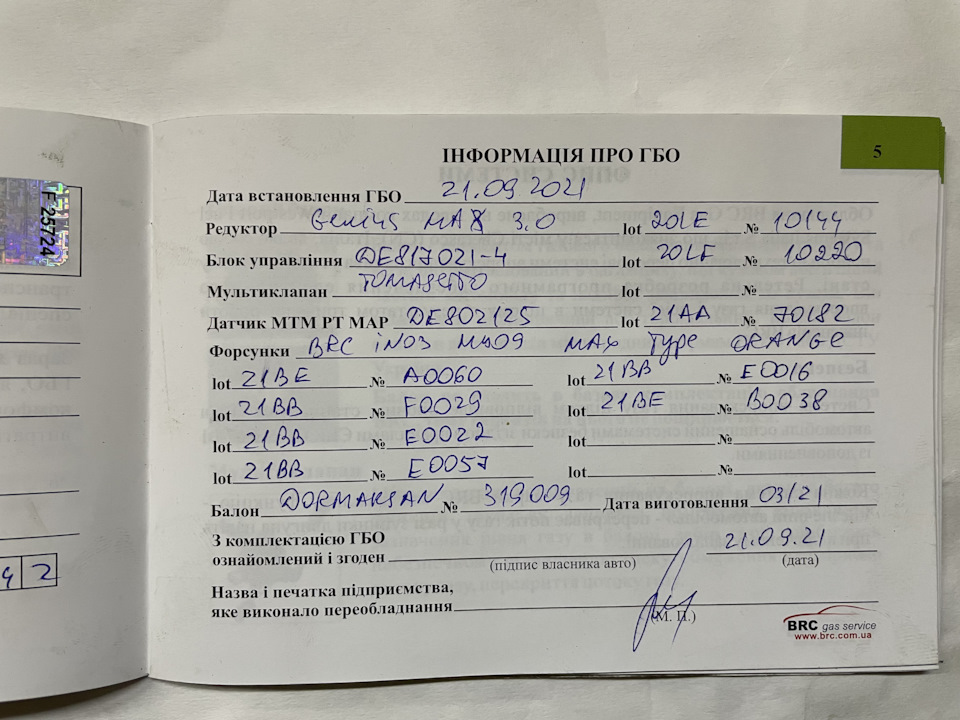 F 25724
4 2
5
ІНФОРМАЦІЯ ПРО ГБО
Дата встановлення ГБО 21.09.2021
Редуктор Genius MAX 3.0 lot 20LE № 10144
Блок управління DE817021-4 lot 20LF № 10220
Мультиклапан TOMASETTO lot №
Датчик МТМ РТ МАР DE802125 lot 21AA № 70182
Форсунки BRC iN03 MY09 MAX Type ORANGE
lot 21BE № A0060 lot 21BB № E0016
lot 21BB № F0029 lot 21BE № B0038
lot 21BB № E0022 lot №
lot 21BB № E0057 lot №
Балон DORMAKSAN № 319009 Дата виготовлення 03/21
З комплектацією ГБО
ознайомлений і згоден 21.09.21
(підпис власника авто) (дата)
Назва і печатка підприємства,
яке виконало переобладнання
(М. П.)
BRC gas service
www.brc.com.ua